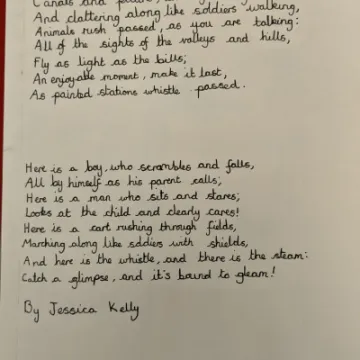 Canals and
And clattering along like soldiers walking,
Animals rush passed, as you are talking:
All of the sights of the valleys and hills,
Fly as light as the bills;
An enjoyable moment, make it last,
As painted stations whistle passed.
Here is a boy, who scrambles and falls,
All by himself as his parent calls;
Here is a man who sits and stares;
Looks at the child and clearly cares!
Here is a cart rushing through fields,
Marching along like soldiers with shields,
And here is the whistle, and there is the steam:
Catch a glimpse, and it's bound to gleam!
By Jessica Kelly